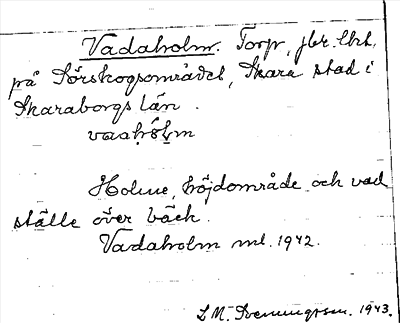 Vadaholm. Torp, jbr. lht.
på Sörskogsområdet, Skara stad i
Skaraborgs län.
vaahólm
Holme, höjdområde och vad
ställe över bäck.
Vadaholm ml. 1942.
L M. Svenungsson. 1943.